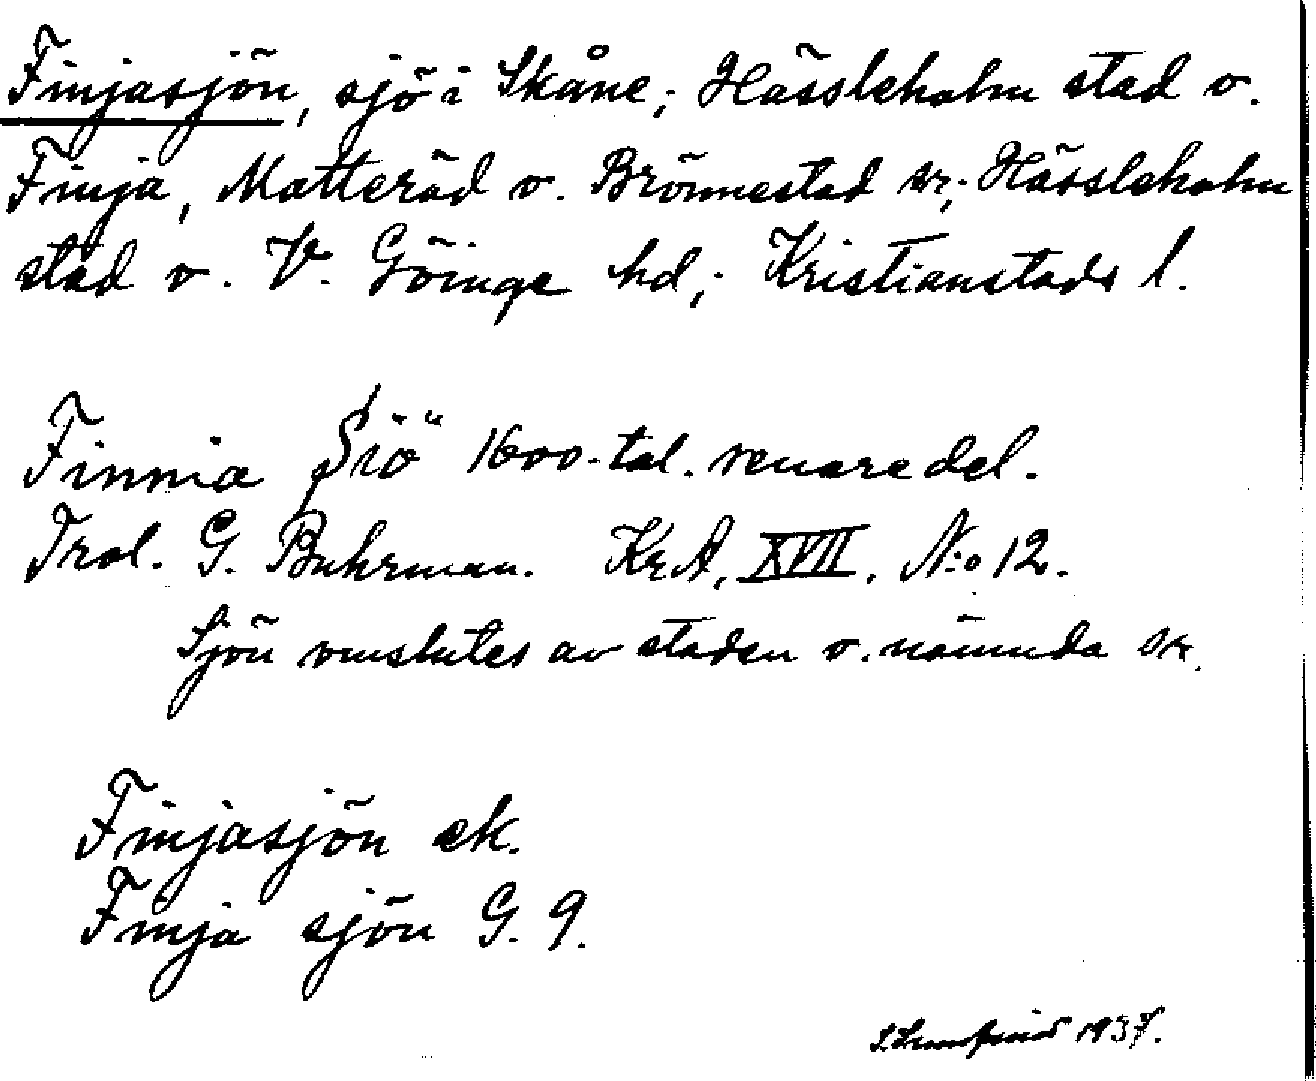 Finjasjön, sjö i Skåne; Hässleholm stad o.
Finja, Matteröd o. Brönnestad sr; Hässleholm
stad o. V. Göinge hd; Kristianstads l.
Finnia Siö 1600-tal. senare del.
Trol. G. Buhrman. KrA, XVII, N:o 12.
Sjön omslutes av staden o. nämnda sr.
Finjasjön ek.
Finja sjön G. 9.
1937.